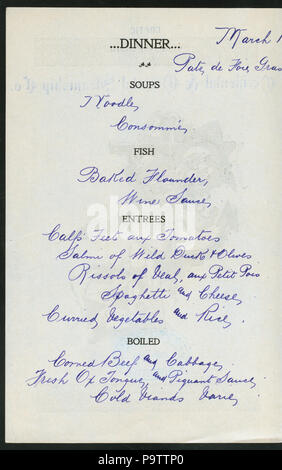 ...DINNER...
March 1
Pate de Foie Gras
SOUPS
Noodle,
Consommé,
FISH
Baked Flounder,
Wine Sauce,
ENTREES
Calf's Feet aux Tomatoes
Salmi of Wild Duck & Olives
Rissols of Veal, aux Petit Pois
Spaghetti and Cheese,
Curried Vegetables and Rice,
BOILED
Corned Beef and Cabbage,
Fresh Ox Tongue, and Piquant Sauce,
Cold Viands Varie,
alamy
alamy
Image ID: P9TTP0
www.alamy.com